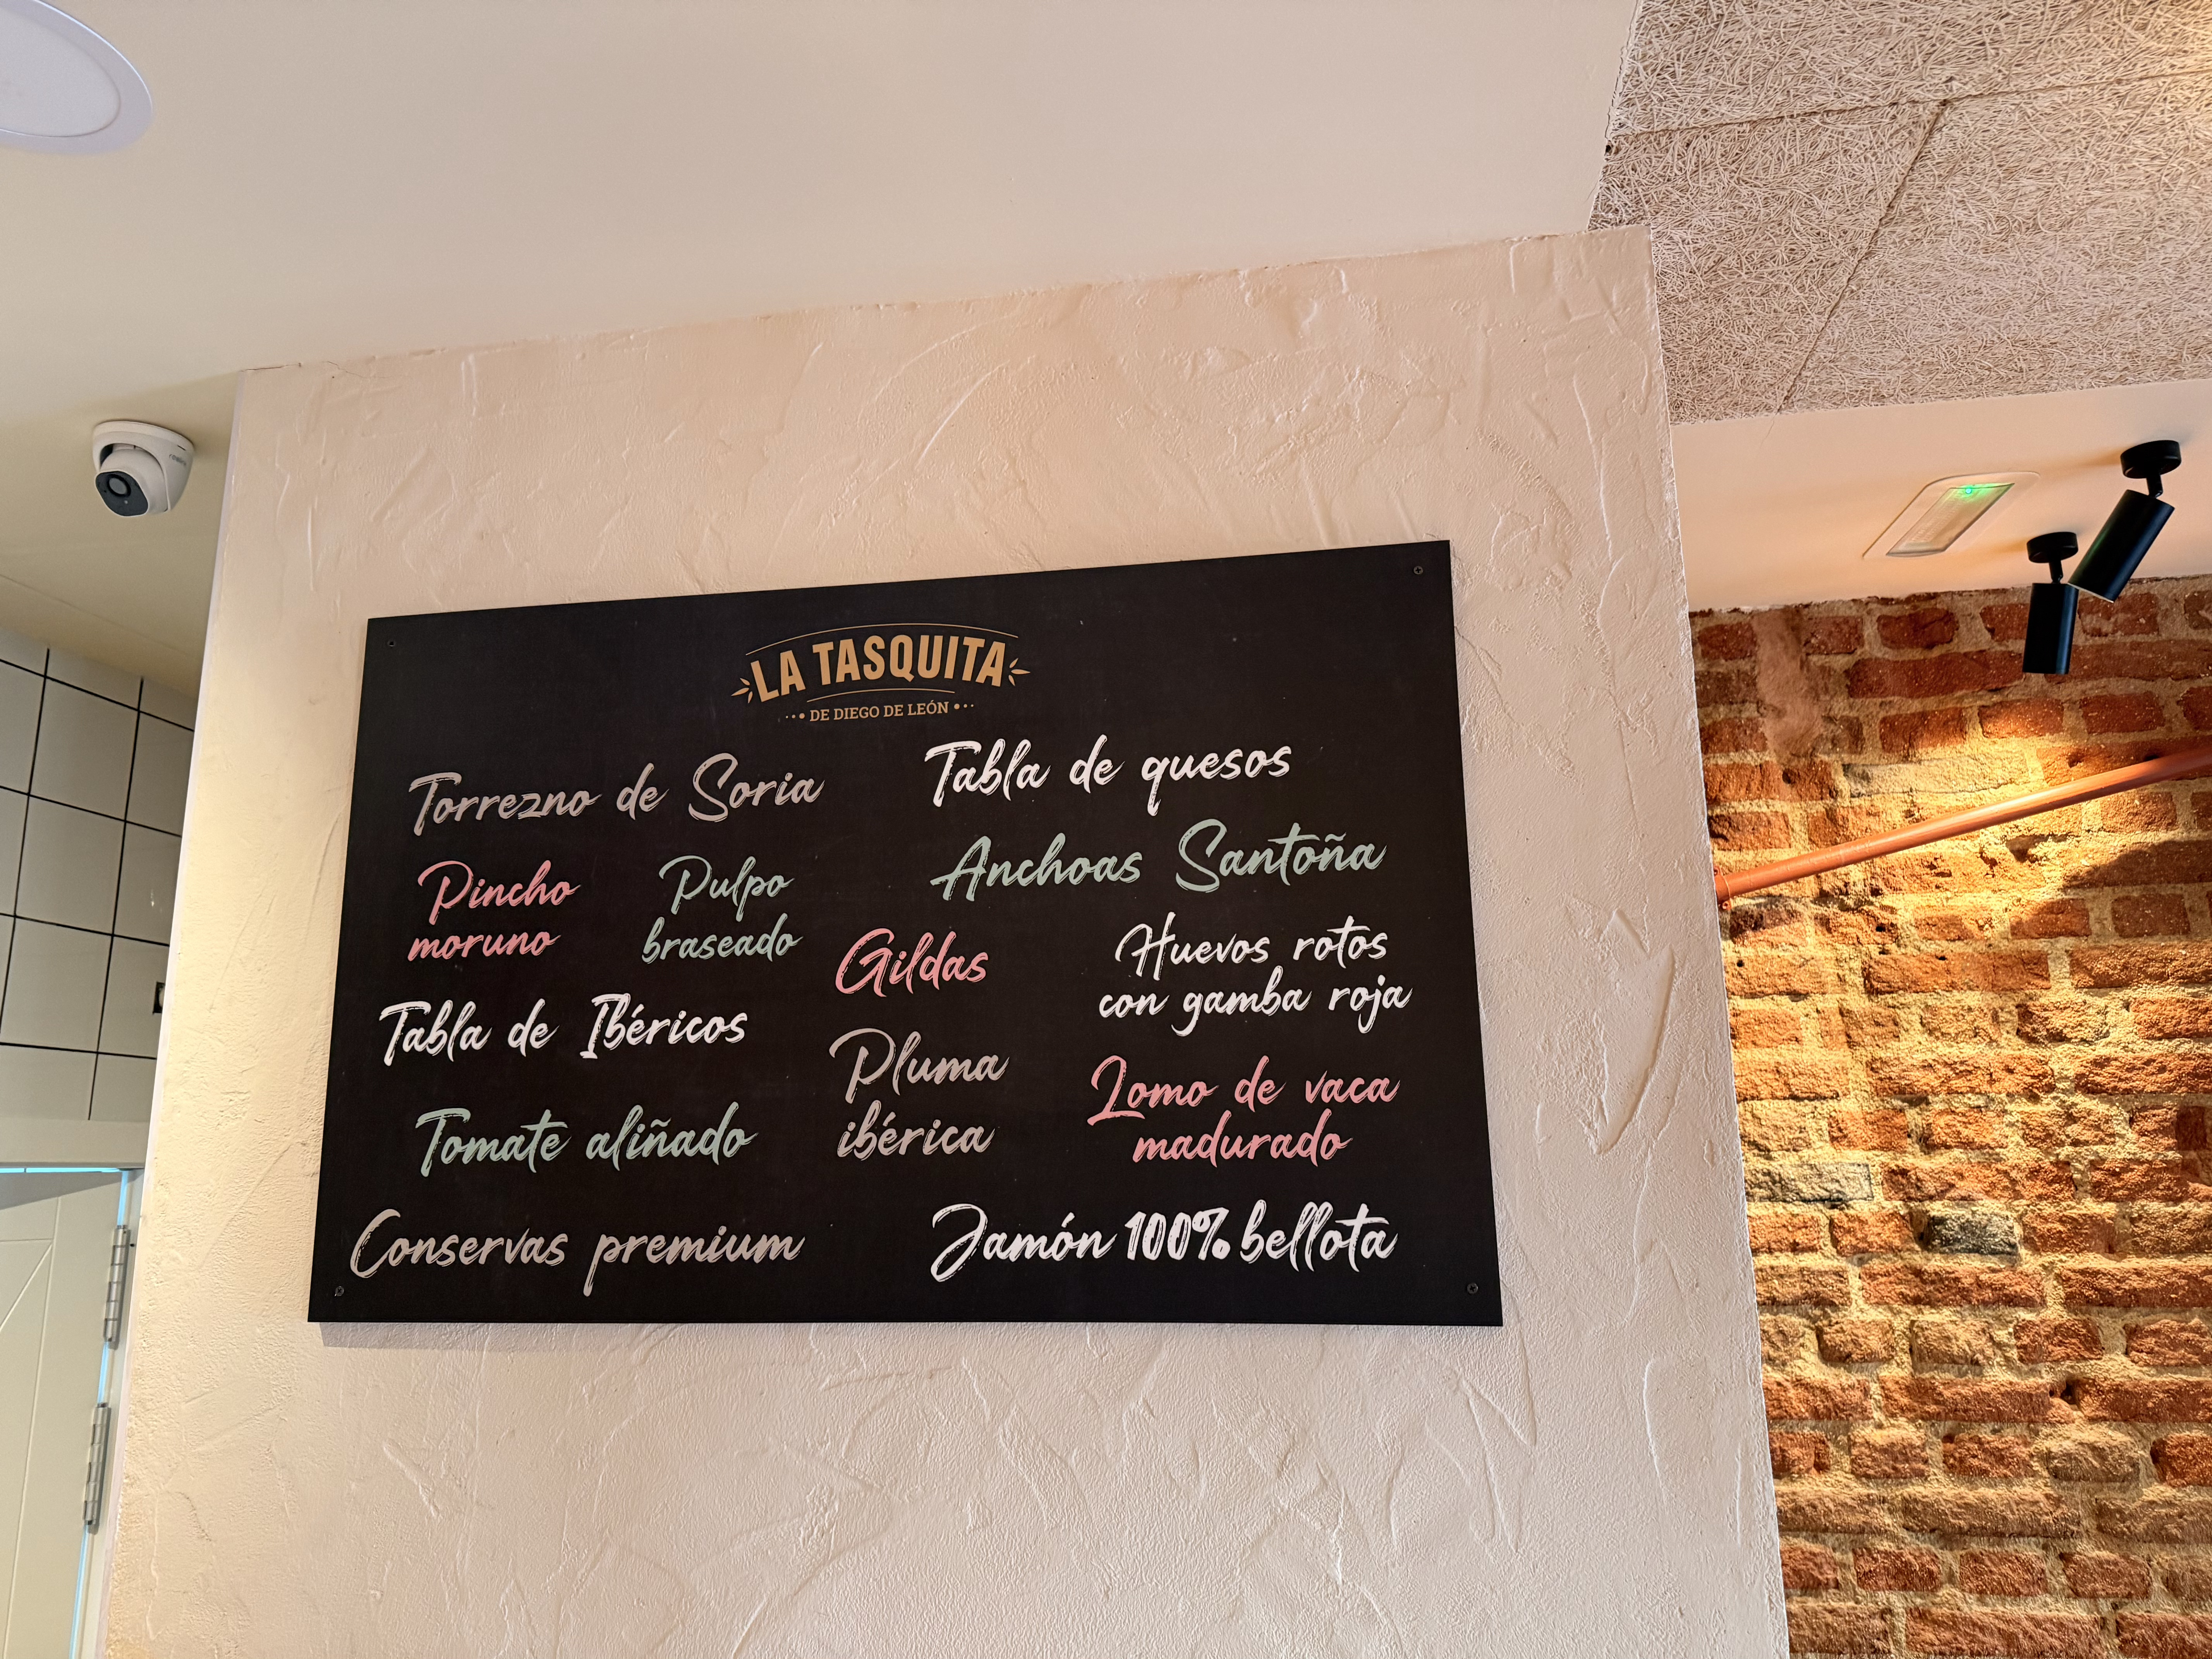 LA TASQUITA
DE DIEGO DE LEÓN
Torrezno de Soria
Tabla de quesos
Pincho
moruno
Pulpo
braseado
Anchoas Santoña
Gildas
Huevos rotos
con gamba roja
Tabla de Ibéricos
Pluma
ibérica
Lomo de vaca
madurado
Tomate aliñado
Conservas premium
Jamón 100% bellota